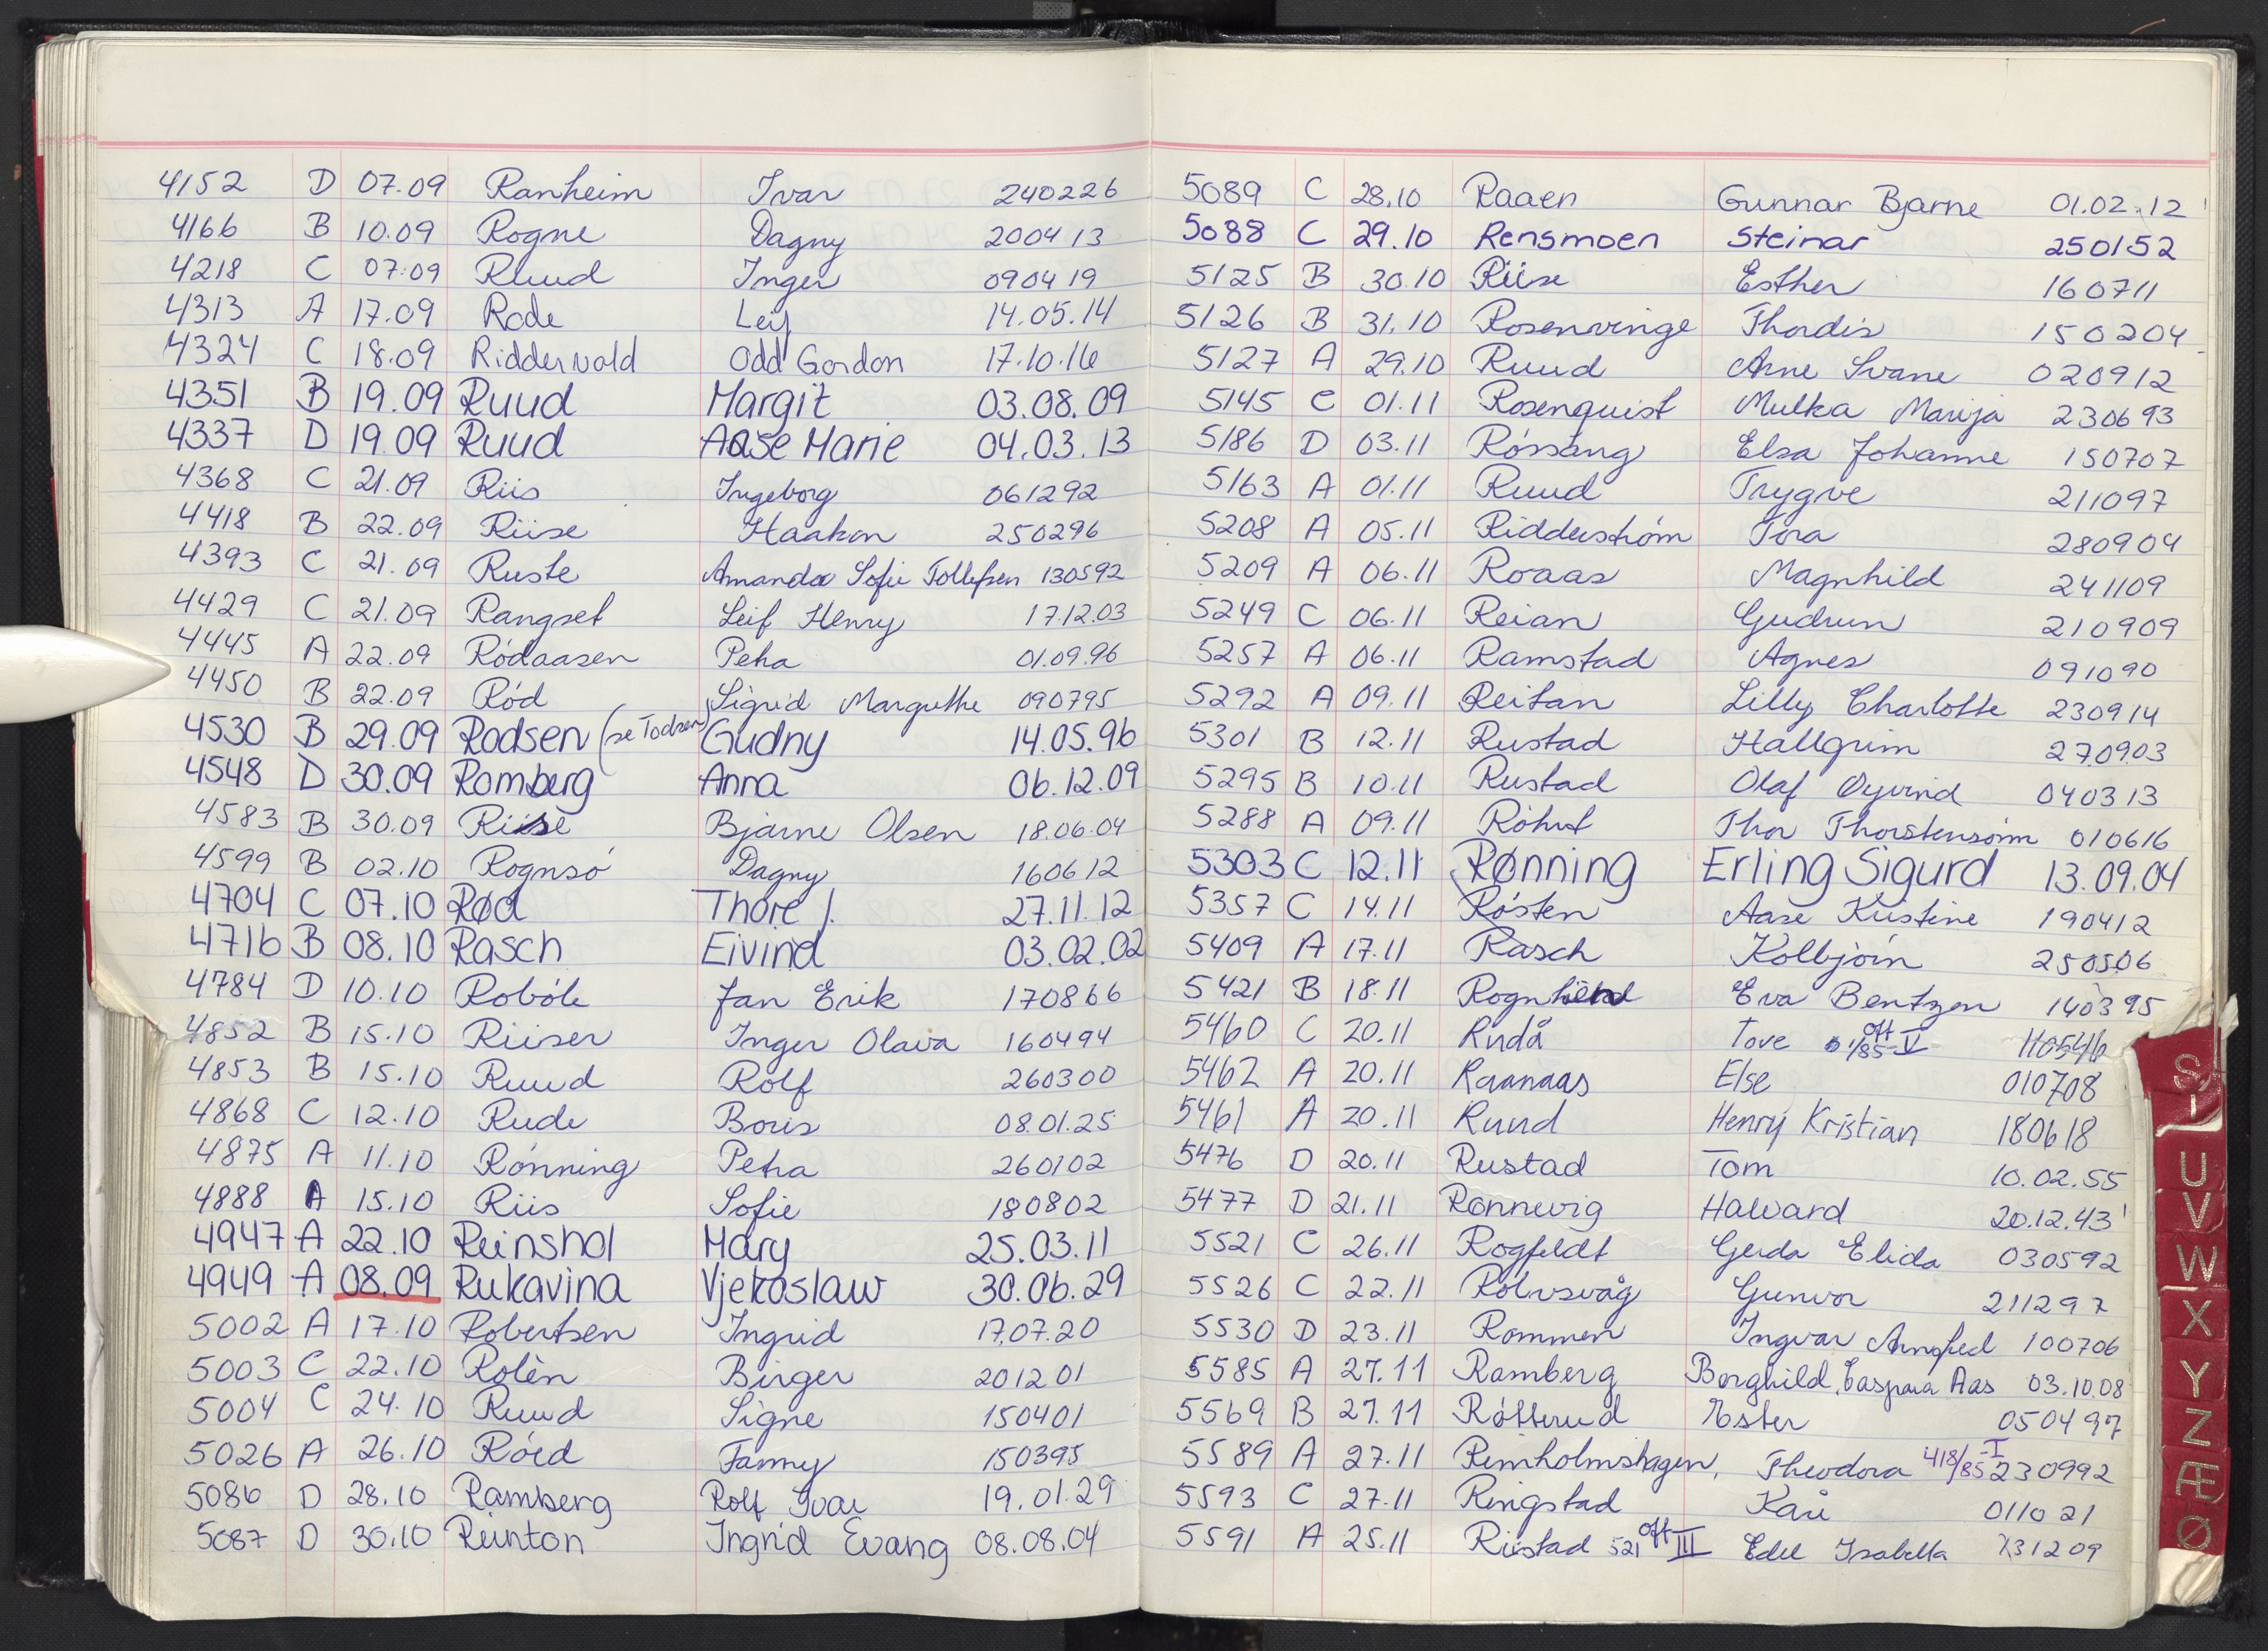 4152 D 07.09 Ranheim Ivar 240226
4166 B 10.09 Rogne Dagny 200413
4218 C 07.09 Ruud Inger 090419
4313 A 17.09 Rode Leif 14.05.14
4324 C 18.09 Ridder vold Odd Gordon 17.10.16
4351 B 19.09 Ruud Margit 03.08.09
4337 D 19.09 Ruud Aase Marie 04.03.13
4368 C 21.09 Riis Ingeborg 061292
4418 B 22.09 Riise Haakon 250296
4393 C 21.09 Ruste Amanda Sofie Tollefsen 130592
4429 C 21.09 Rangset Leif Henry 17.12.03
4445 A 22.09 Rødaasen Petra 01.09.96
4450 B 22.09 Rød Sigrid Margrethe 090795
4530 B 29.09 Rodsen (se Todsen) Gudny 14.05.96
4548 D 30.09 Romberg Anna 06.12.09
4583 B 30.09 Riise Bjarne Olsen 18.06.04
4599 B 02.10 Rognsø Dagny 160612
4704 C 07.10 Rød Thore J. 27.11.12
4716 B 08.10 Rasch Eivind 03.02.02
4784 D 10.10 Robøle Jan Erik 170866
4852 B 15.10 Riiser Inger Olava 160494
4853 B 15.10 Ruud Rolf 260300
4868 C 12.10 Rude Boris 08.01.25
4875 A 11.10 Rønning Petra 260102
4888 A 15.10 Riis Sofie 180802
4947 A 22.10 Reinshol Mary 25.03.11
4949 A 08.09 Rukavina Vjekoslaw 30.06.29
5002 A 17.10 Robertsen Ingrid 17.07.20
5003 C 22.10 Rolèn Birger 201201
5004 C 24.10 Ruud Signe 150401
5026 A 26.10 Röed Fanny 150395
5086 D 28.10 Ramberg Rolf Ivar 19.01.29
5087 D 30.10 Reinton Ingrid Evang 08.08.04
5089 C 28.10 Raaen Gunnar Bjarne 01.02.12
5088 C 29.10 Rensmoen Steinar 250152
5125 B 30.10 Riise Esther 160711
5126 B 31.10 Rosenvinge Thordis 150204
5127 A 29.10 Ruud Arne Svane 020912
5145 C 01.11 Rosenquist Mulka Marija 230693
5186 D 03.11 Røssang Elsa Johanne 150707
5163 A 01.11 Ruud Trygve 211097
5208 A 05.11 Ridderstrøm Tora 280904
5209 A 06.11 Roaas Magnhild 241109
5249 C 06.11 Reian Gudrun 210909
5257 A 06.11 Ramstad Agnes 091090
5292 A 09.11 Reitan Lilly Charlotte 230914
5301 B 12.11 Rustad Hallgrim 270903
5295 B 10.11 Rustad Olaf Øyvind 040313
5288 A 09.11 Röhrt Thor Thorstensønn 010616
5303 C 12.11 Rønning Erling Sigurd 13.09.04
5357 C 14.11 Røsten Aase Kristine 190412
5409 A 17.11 Rasch Kolbjørn 250506
5421 B 18.11 Eva Bentzen 140395
5460 C 20.11 Rudå Tove 1/85 oft V 110546
5462 A 20.11 Raanaas Else 010708
5461 A 20.11 Ruud Henry Kristian 180618
5476 D 20.11 Rustad Tom 10.02.55
5477 D 21.11 Rønnevig Halvard 20.12.43
5521 C 26.11 Rogfeldt Gerda Elida 030592
5526 C 22.11 Rolvsvåg Gunvor 211297
5530 D 23.11 Rommen Ingvar Arnfred 100706
5585 A 27.11 Ramberg Borghild Caspara Aas 03.10.08
5569 B 27.11 Røtterud Ester 050497
5589 A 27.11 Reinholmshagen, Theodora 418/85-I 230992
5593 C 27.11 Ringstad Kari 011021
5591 A 25.11 Riistad 521 oft III Edel Isabella 131209
S
U
V
W
X
Y
Z
Æ
Ø